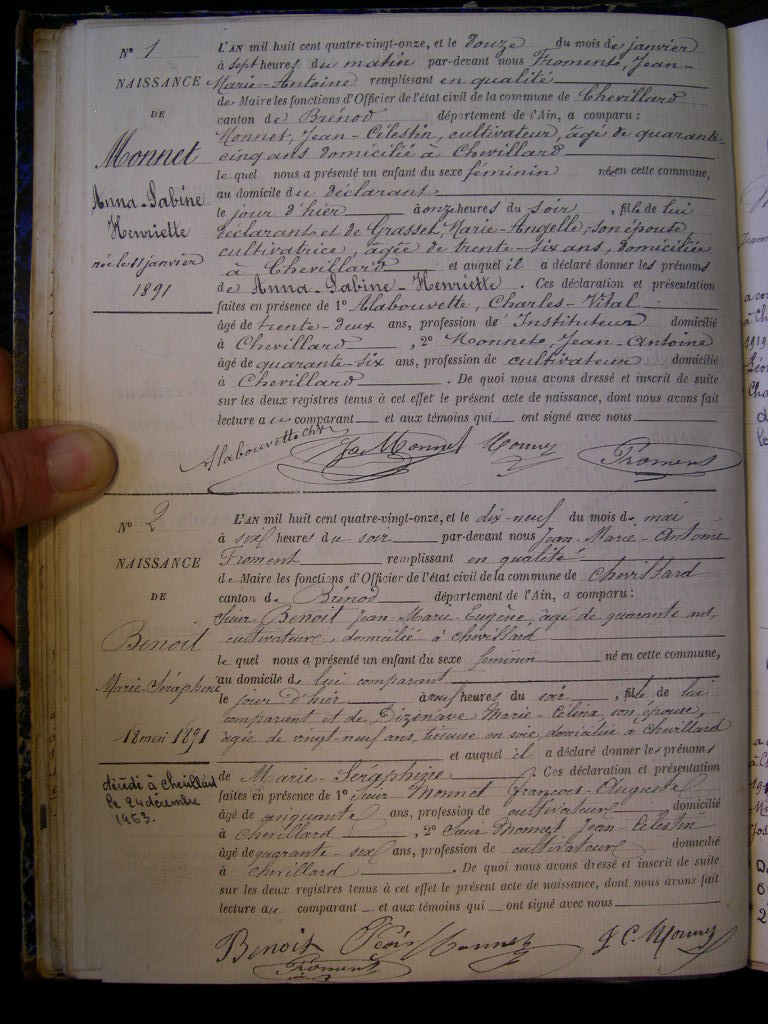 N° 1
NAISSANCE
DE
Monnet
Anna-Sabine
Henriette
née le 11 janvier
1891
L'AN mil huit cent quatre-vingt-onze, et le douze du mois de janvier
à sept heures du matin par-devant nous Froment, Jean-
Marie-Antoine remplissant en qualité
de Maire les fonctions d'Officier de l'état civil de la commune de Chevillard
canton de Brénod département de l'Ain, a comparu :
Monnet, Jean-Célestin, cultivateur, âgé de quarante-
cinq ans domicilié à Chevillard
le quel nous a présenté un enfant du sexe féminin né en cette commune,
au domicile du déclarant
le jour d'hier à onze heures du soir, fille de lui
déclarant et de Grasset, Marie-Angelle, son épouse,
cultivatrice, âgée de trente-six ans, domiciliée
à Chevillard et auquel il a déclaré donner les prénoms
de Anna-Sabine-Henriette. Ces déclaration et présentation
faites en présence de 1° Alabouvette, Charles-Vital
âgé de trente-deux ans, profession d'Instituteur domicilié
à Chevillard, 2° Monnet, Jean-Antoine
âgé de quarante-six ans, profession de cultivateur domicilié
à Chevillard. De quoi nous avons dressé et inscrit de suite
sur les deux registres tenus à cet effet le présent acte de naissance, dont nous avons fait
lecture au comparant et aux témoins qui ont signé avec nous
Alabouvette Ch Ja Monnet Monnet Froment
N° 2
NAISSANCE
DE
Benoit
Marie-Séraphine
18 mai 1891
décédé à Chevillard
le 24 décembre
1953.
L'AN mil huit cent quatre-vingt-onze, et le dix-neuf du mois de mai
à six heures du soir par-devant nous Jean-Marie-Antoine
Froment remplissant en qualité
de Maire les fonctions d'Officier de l'état civil de la commune de Chevillard
canton de Brénod département de l'Ain, a comparu :
Sieur Benoit Jean-Marie-Eugène, âgé de quarante
cultivateur, domicilié à Chevillard
le quel nous a présenté un enfant du sexe féminin né en cette commune,
au domicile de lui comparant
le jour d'hier à neuf heures du soir, fille de lui
comparant et de Marie-Célina, son épouse,
âgée de vingt-neuf ans, tisseuse en soie, domiciliée à Chevillard
et auquel il a déclaré donner les prénoms
de Marie-Séraphine. Ces déclaration et présentation
faites en présence de 1° Sieur Monnet François-Auguste
âgé de cinquante ans, profession de cultivateur domicilié
à Chevillard, 2° Sieur Monnet, Jean Célestin
âgé de quarante-six ans, profession de cultivateur domicilié
à Chevillard. De quoi nous avons dressé et inscrit de suite
sur les deux registres tenus à cet effet le présent acte de naissance, dont nous avons fait
lecture au comparant et aux témoins qui ont signé avec nous
Benoit Monnet J C Monnet
Froment